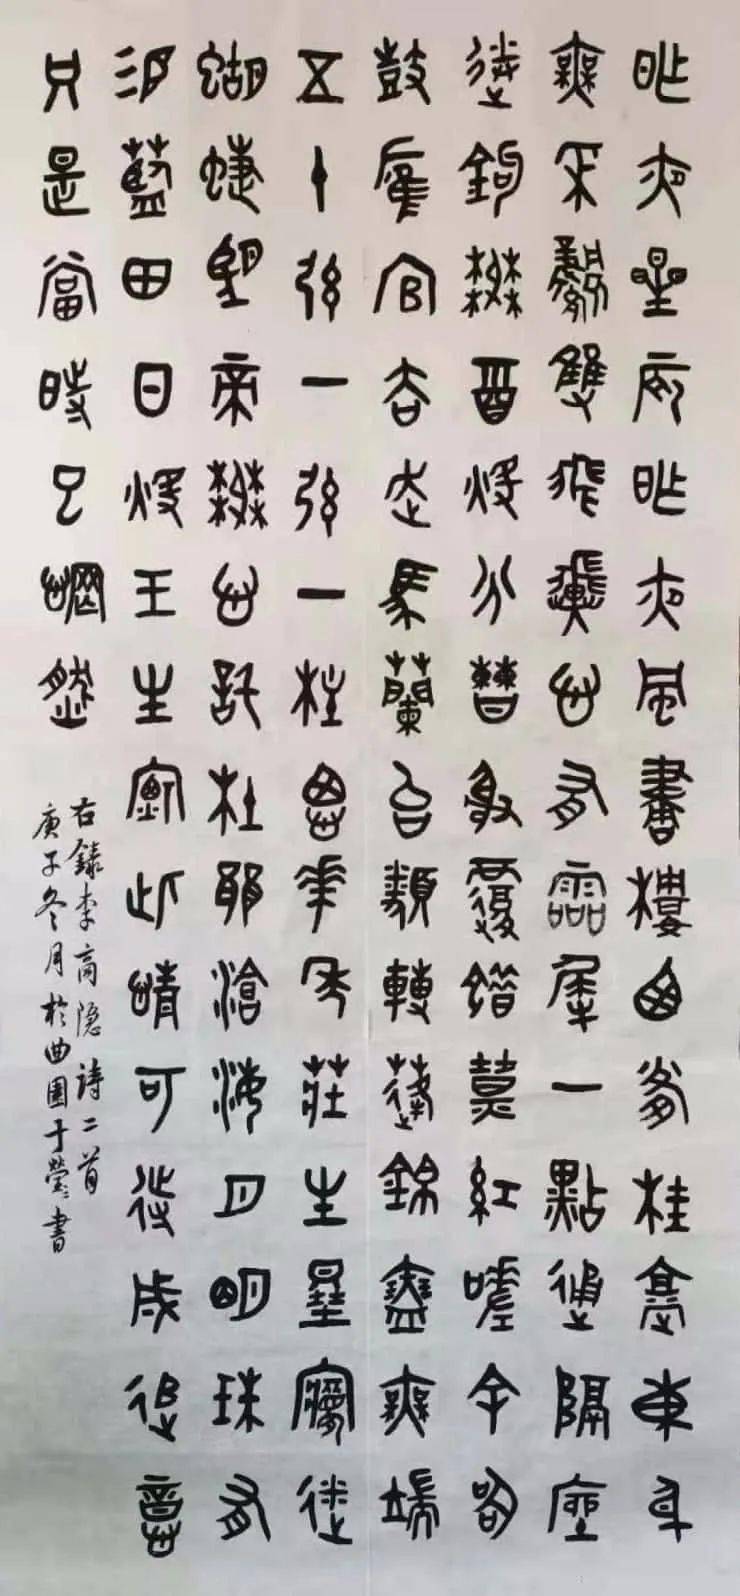 昨夜星辰昨夜風畫樓西畔桂堂東身
無采鳳雙飛翼心有靈犀一點通隔座
送鉤春酉暖分曹射覆蜡燈紅嗟余聽
鼓應官去走馬蘭台類轉蓬錦瑟無端
五十弦一弦一柱思華年莊生曉夢迷
蝴蝶望帝春心託杜鵑滄海月明珠有
淚藍田日暖玉生煙此情可待成追憶
只是當時已惘然
右錄李商隐詩二首
庚子冬月於曲園于瑩書